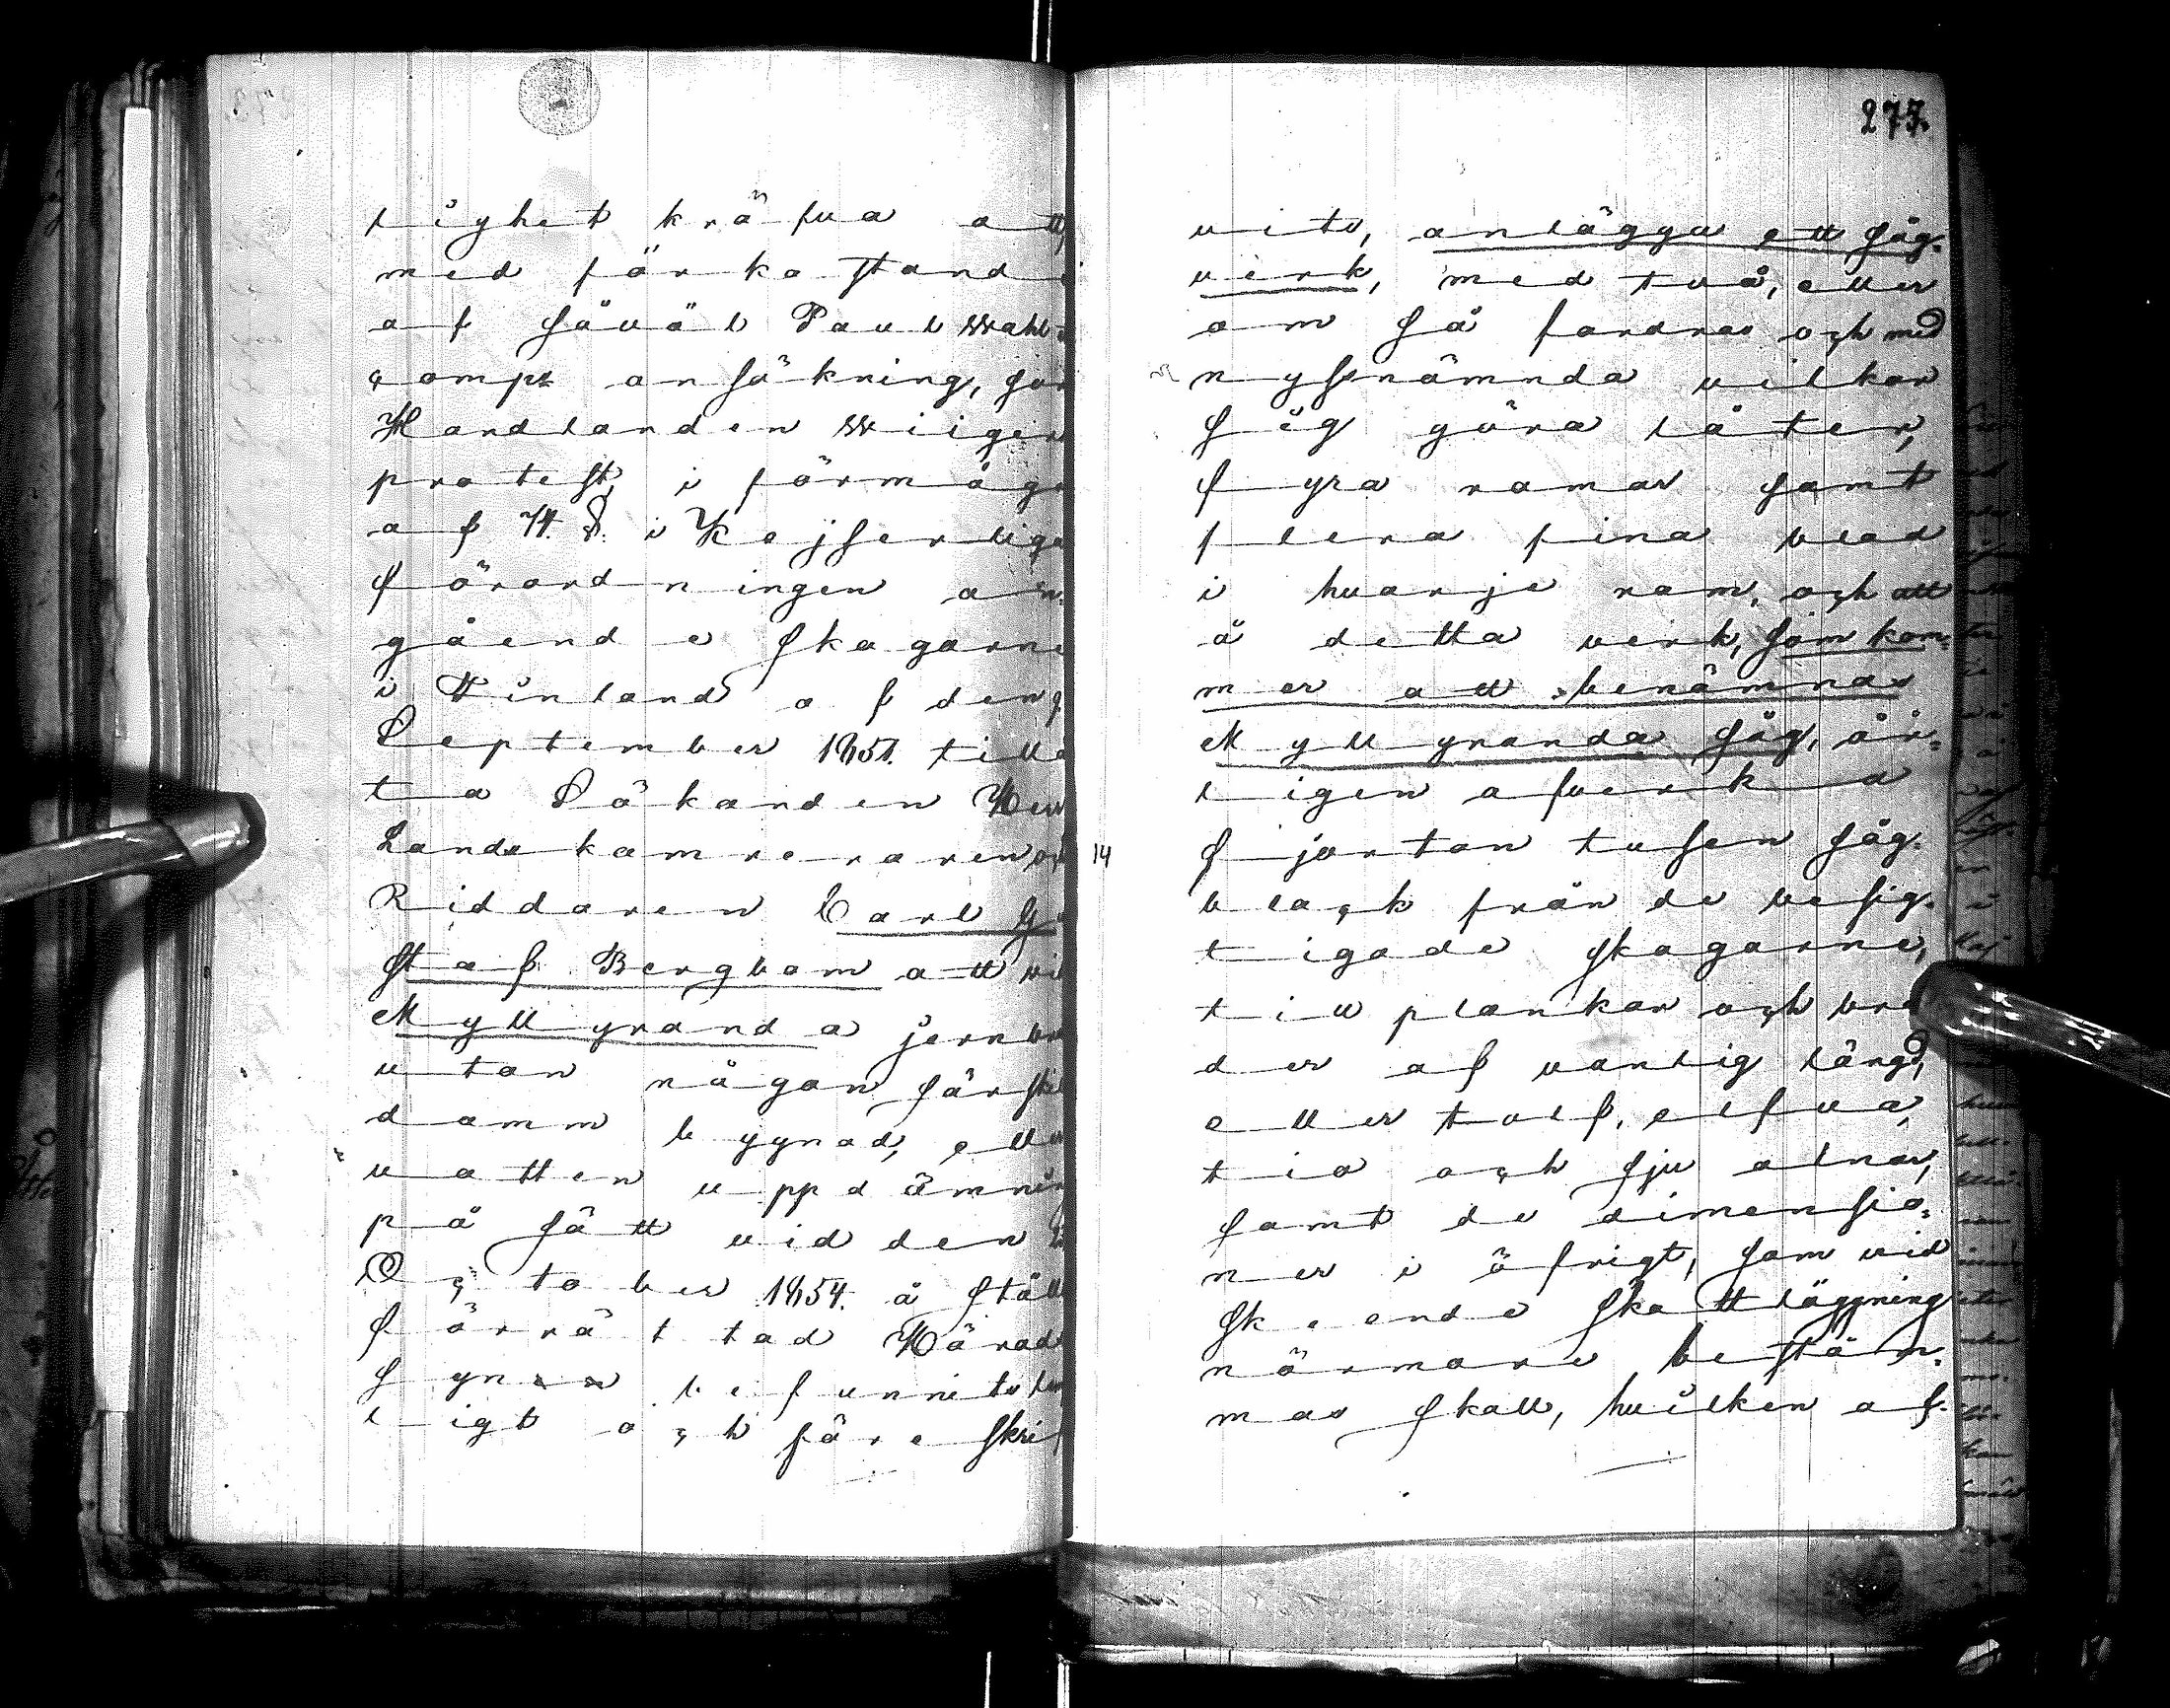 lighet kräfva att,
med förkastande
af såväl Paul Wahl &
Comps ansökning, som
Handlanden Wiigers
protest, i förmåga
af 74. §. i Kejserliga
Förordningen an-
gående skogarne
i Finland af den 9.
September 1851. tillå-
ta Sökanden Herr
Landskamreraren och
Riddaren Carl Gu-
staf Bergbom att vid
Myllyranda jernbruk
utan någon särskild
dammbyggnad, eller
vatten uppdämning
på sätt vid den
October 1854. å stället
förrättad Härads
Syn befunnits lämp-
ligt och föreskri-
277.
vits, anlägga ett såg-
verk, med två, eller
om så fordras och med
nyssnämnda vilkor
sig göra låter,
fyra ramar samt
flera fina blad
i hvarje ram, och att
å detta verk, som kom-
mer att benämnas
Myllyranda såg, år-
ligen afverka
14 fjorton tusen såg-
block från de besig-
tigade skogarne,
till plankor och brä-
der af vanlig längd,
eller tolf, elfva,
tio och sju alnar,
samt de dimensio-
ner i öfrigt, som vid
skeende skattläggning
närmare bestäm-
mas skall, hvilken af-